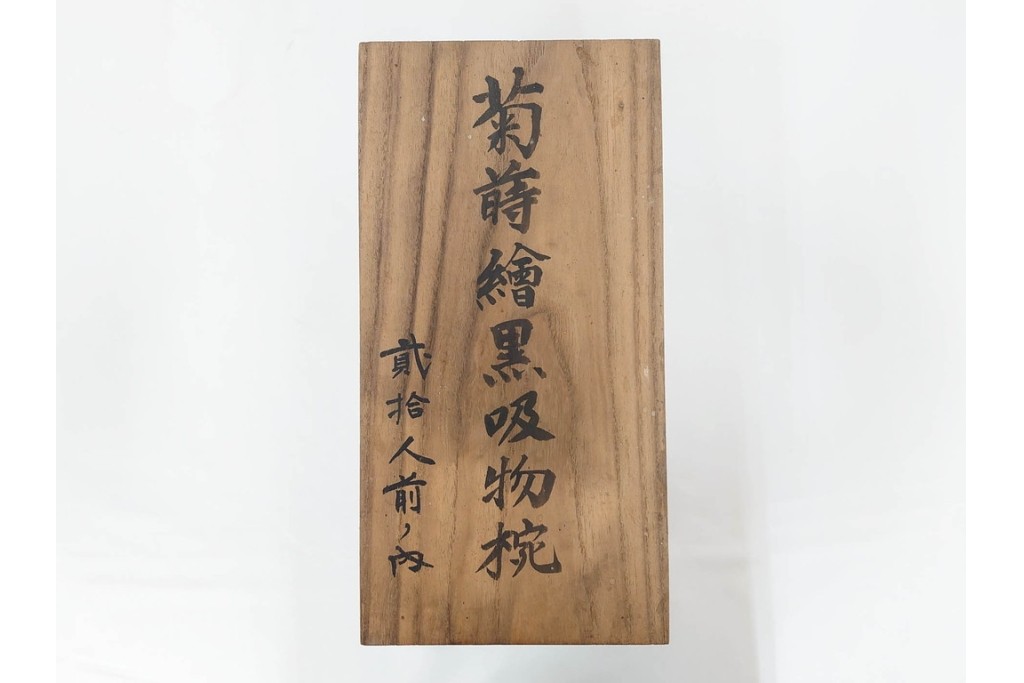 菊蒔繪黒吸物椀
貳拾人前ノ内